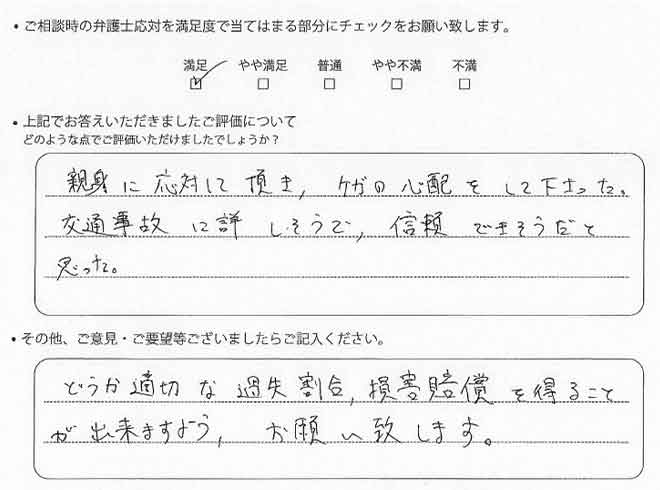 ・ご相談時の弁護士応対を満足度で当てはまる部分にチェックをお願い致します。
満足 やや満足 普通 やや不満 不満
・上記でお答えいただきましたご評価について
どのような点でご評価いただけましたでしょうか？
親身に応対して頂き，ケガの心配をして下さった。
交通事故に詳しそうで，信頼できそうだと
思った。
・その他、ご意見・ご要望等ございましたらご記入ください。
どうか適切な過失割合，損害賠償を得ること
が出来ますよう，お願い致します。